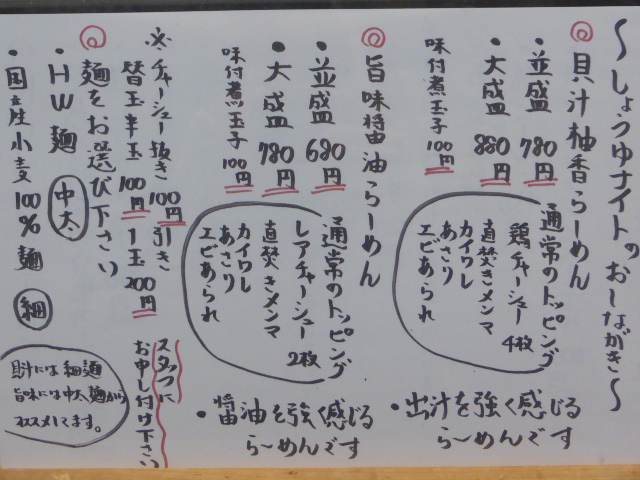 ～しょうゆナイトのおしながき～
◎貝汁柚香らーめん
・並盛 780
・大盛 880円
味付煮玉子 100円
通常のトッピング
鶏チャーシュー 4枚
直焚きメンマ
カイワレ
あさり
エビあられ
・出汁を強く感じる
らーめんです
◎旨味醤油らーめん
・並盛 680円
・大盛 780円
味付煮玉子 100円
通常のトッピング
レアチャーシュー 2枚
直焚きメンマ
カイワレ
あさり
エビあられ
・醤油を強く感じる
らーめんです
※チャーシュー抜き 100円引き
替玉半玉 100円 1玉 200円
スタッフに
お申し付け下さい
◎麺をお選び下さい
・HW麺 中太
・国産小麦100%麺 細
貝汁には細麺
旨味には中太麺が
オススメしてます。